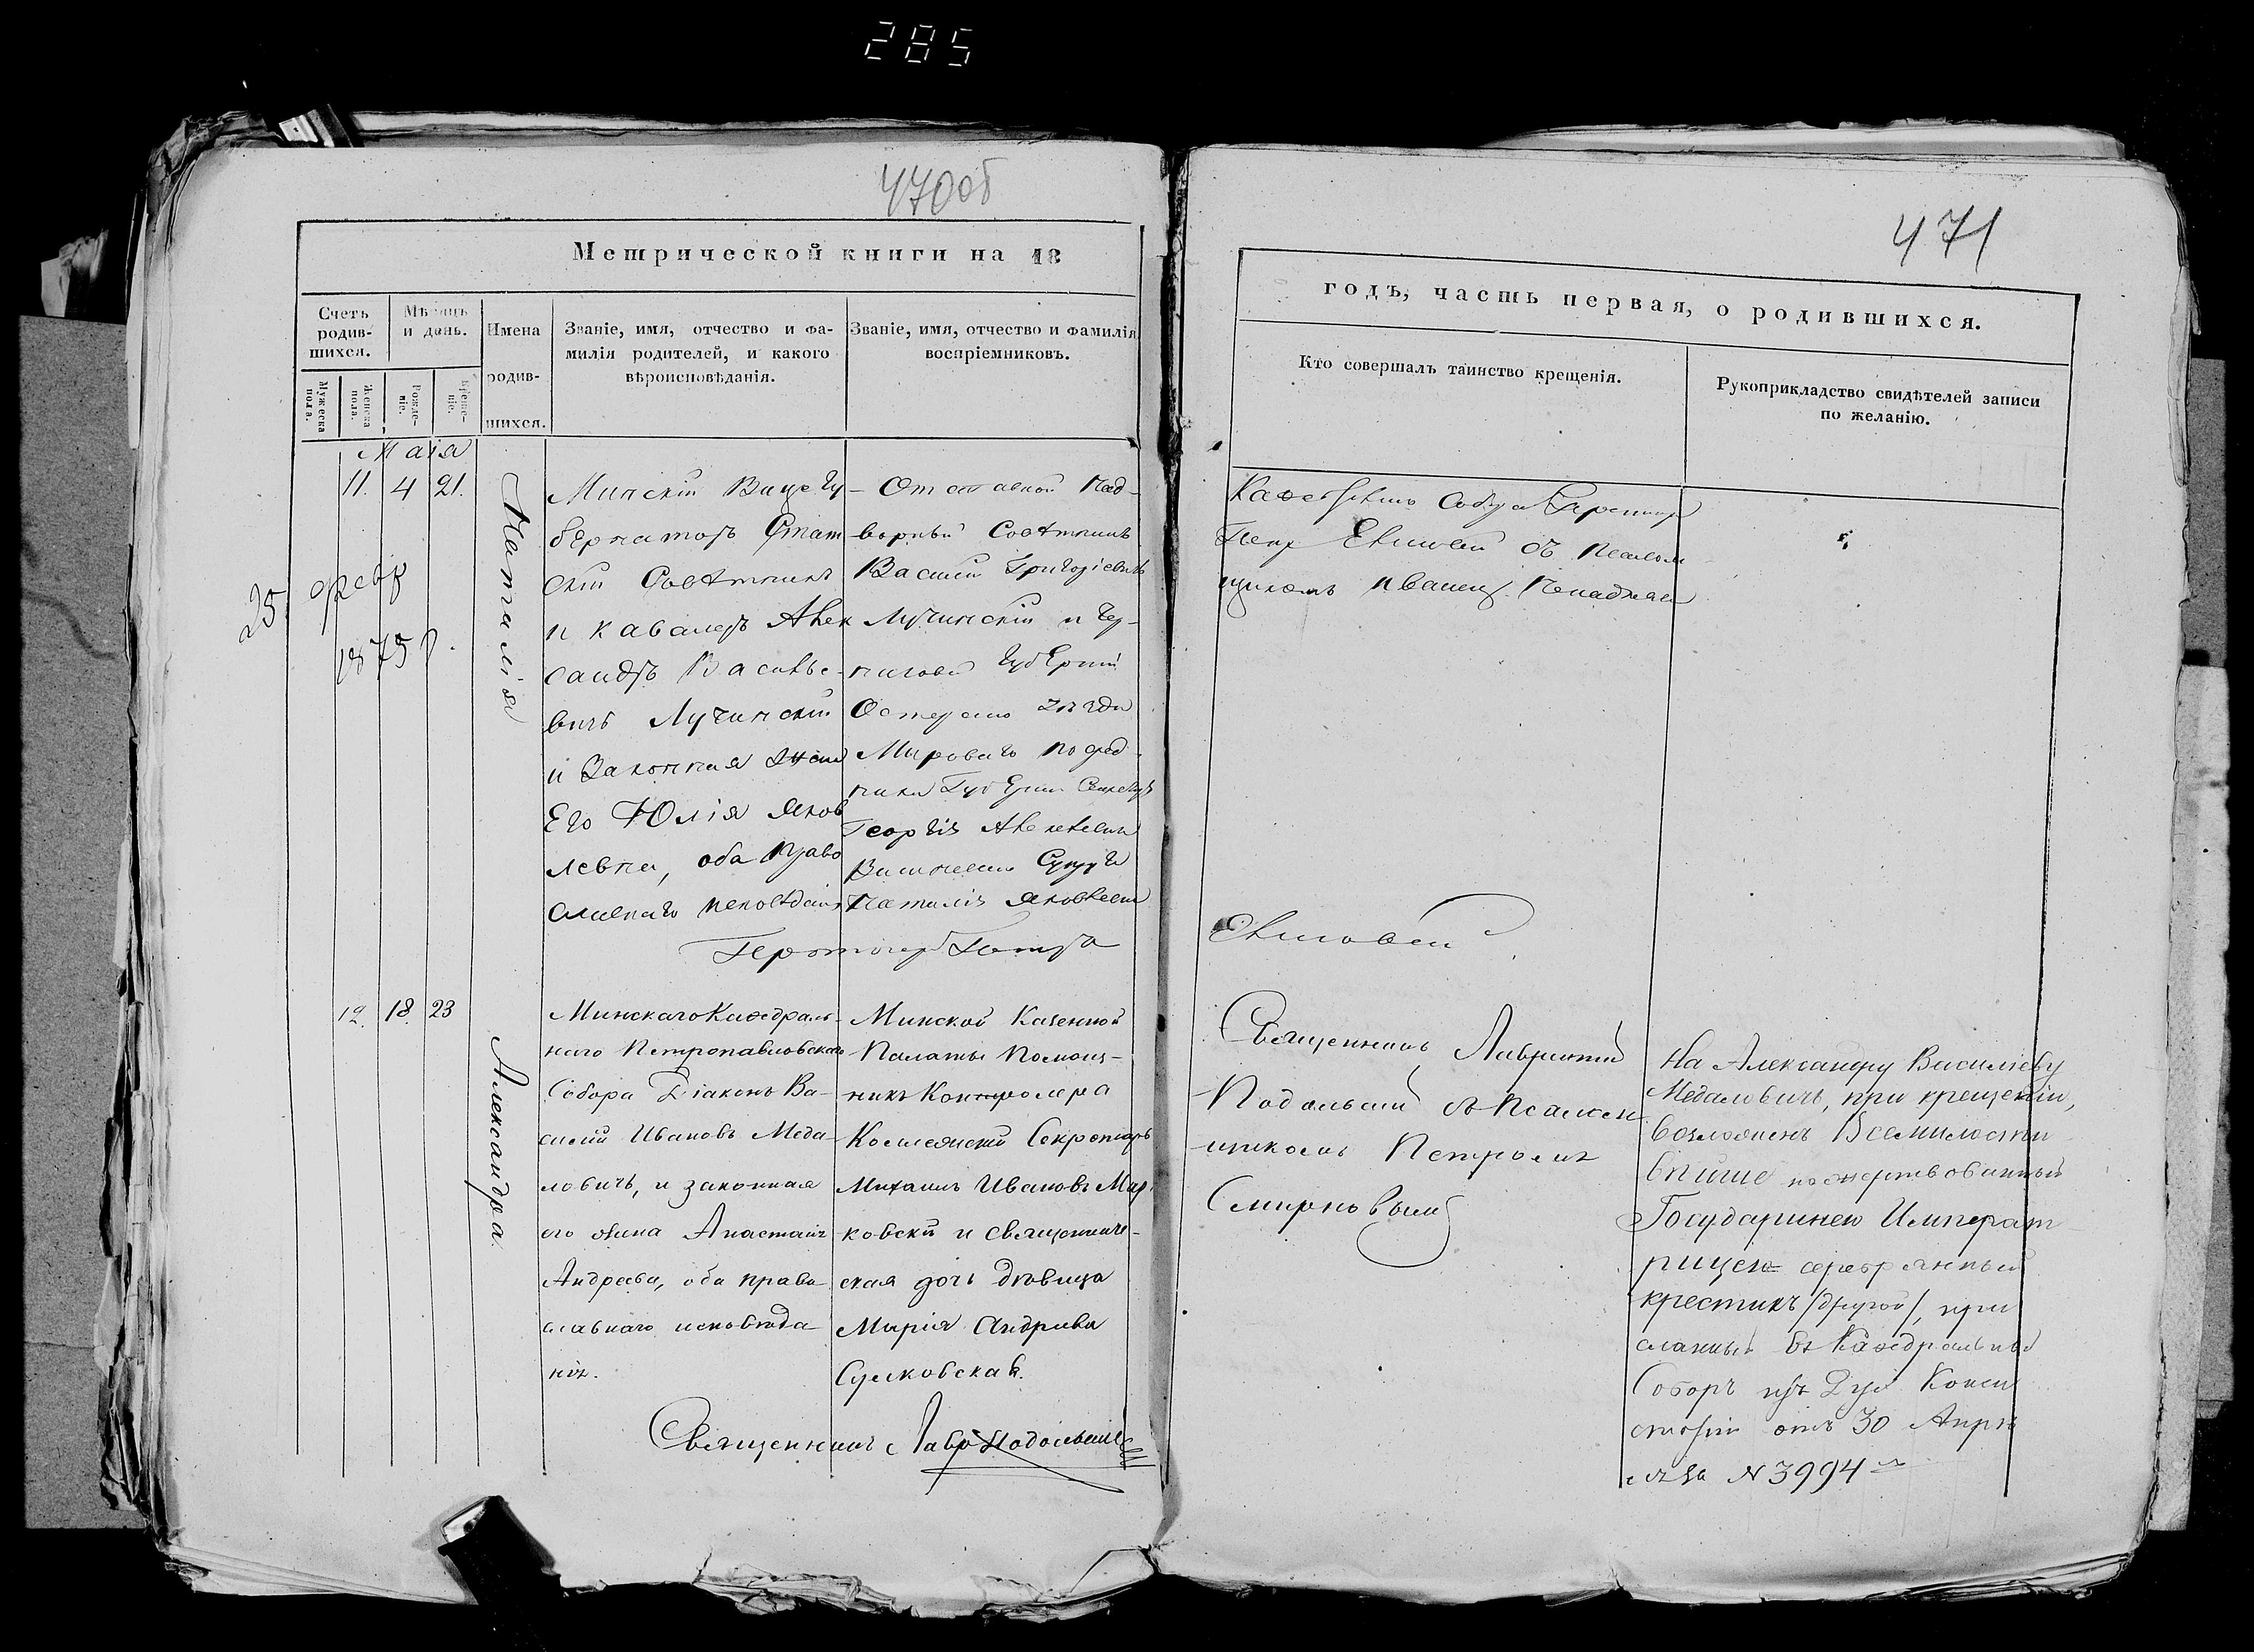 285
470об
Метрической книги на 18
Счетъ родив-шихся.
Мужеска пола.
Женска пола.
Мѣсяцъ и день.
Рожде-ніе.
Креще-ніе.
Имена родив-шихся.
Званіе, имя, отчество и фа-
милія родителей, и какого
вѣроисповѣданія.
Званіе, имя, отчество и фамилія
воспріемниковъ.
Маія
11. 4 21.
25. февр
1875 г.
Наталія
Минскій Вице Гу-
бернаторъ Стат
скій Совѣтникъ
и кавалеръ Алек
сандръ Василье-
вичъ Лучинскій
и Законная жена
Его Юлія Яков
левна, оба Право
славнаго исповѣданія
Отставной Над-
ворный Совѣтникъ
Василій Григоріевичъ
Лучинскій и Чер-
нигов Губерніи
Остерскаго уѣзда
Мироваго посред-
ника Губерн Секретаря
Георгія Алексѣевича
Супруга
Наталія Яковлевна
12. 18. 23
Александра
Минскаго Каѳедраль-
наго Петропавловскаго
Собора Діаконъ Ва-
силій Ивановъ Меда-
ловичъ, и законная
его жена Анастасія
Андреева, оба право
славнаго исповѣда-
нія.
Минской Казенной
Палаты Помощ-
никъ Контролера
Коллежскій Секретарь
Михаилъ Ивановъ Мар
ковскій и священниче-
ская дочь дѣвица
Марія Андреева
Сулковская.
Священникъ Лавр Подольскій
471
годъ, часть первая, о родившихся.
Кто совершалъ таинство крещенія.
Рукоприкладство свидѣтелей записи
по желанію.
съ Псалом
щикомъ
Священникъ Лаврентій
Подольскій съ Псалом
щикомъ Петромъ
Смирновымъ
На Александру Василіеву
Медаловичъ, при крещеніи,
возложенъ Всемилости
вѣйше пожертвованный
Государынею Императ
рицею серебрянный
крестикъ /другой/, при
сланный въ Каѳедральный
Соборъ изъ Дух Конси
сторіи отъ 30 Апрѣ
ля за N 3994